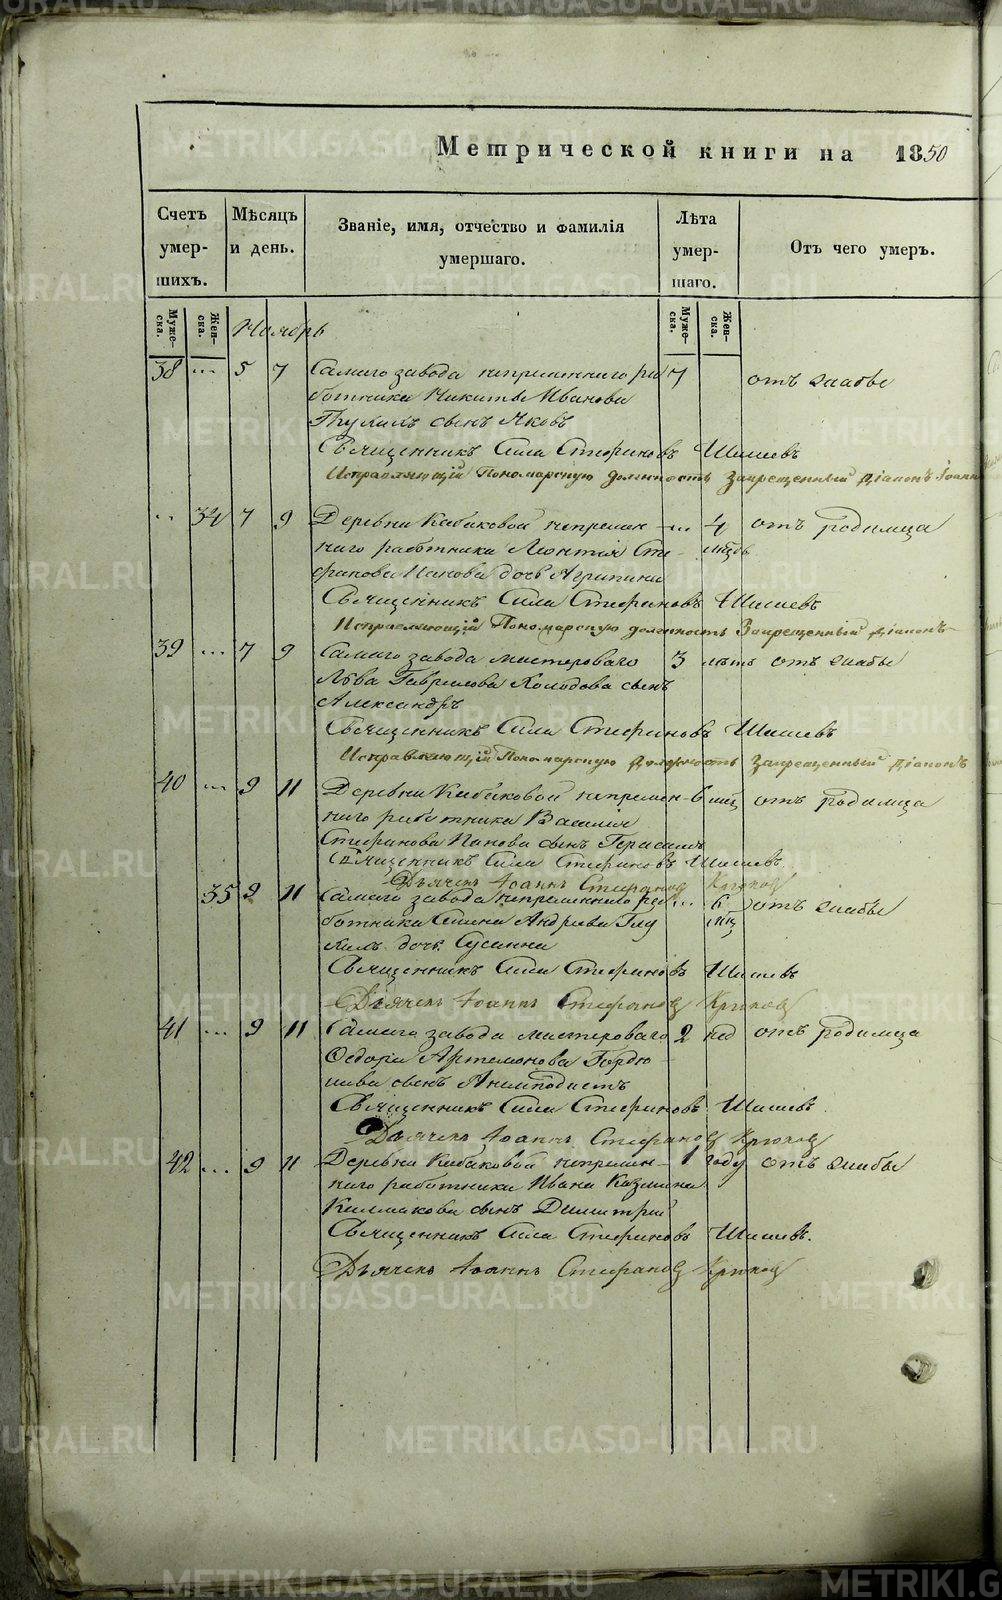 METRIKI.GASO-URAL.RU
Метрической книги на 1850
Счетъ умер-шихъ.
Мѣсяцъ и день.
Званіе, имя, отчество и фамилія умершаго.
Лѣта умер-шаго.
Отъ чего умеръ.
Муже-ска.
Жен-ска.
Ноябрь
Муже-ска.
Жен-ска.
38 ... 5 7 Самаго завода непременнаго ра 7 отъ слабы
ботника Никиты Иванова
сынъ Яковъ
Священникъ Сила Стефановъ Шишевъ
Исправляющій Пономарскую должность Запрещенный діаконъ Іоанн
.. 34 7 9 Деревни Кабаковой непремен- ... 4 отъ родимца
наго работника Леонтія Сте- мѣцъ
фанова Панова дочь Агрипина
Священникъ Сила Стефановъ Шишевъ
Исправляющій Пономарскую должность Запрещенный діаконъ
39 ... 7 9 Самаго завода мастероваго 3 летъ отъ слабы
Льва Гаврилова Холодова сынъ
Александръ
Священникъ Сила Стефановъ Шишевъ
Исправляющій Пономарскую должность Запрещенный діаконъ
40 ... 9 11 Деревни Кабаковой непремен- 6 мѣц отъ родимца
наго работника Василія
Стефанова Панова сынъ Герасимъ
Священникъ Сила Стефановъ Шишевъ
Дьячекъ Іоаннъ Стефановъ Крюковъ
35 9 11 Самаго завода непременнаго ра ... 6 отъ слабы
ботника Андреева мѣц
дочь Сусанна
Священникъ Сила Стефановъ Шишевъ
Дьячекъ Іоаннъ Стефановъ Крюковъ
41 ... 9 11 Самаго завода мастероваго 2 нед отъ родимца
Федора Артемонова Гордю
шева сынъ Анемподистъ
Священникъ Сила Стефановъ Шишевъ
Дьячекъ Іоаннъ Стефановъ Крюковъ
42 ... 9 11 Деревни Кабаковой непремен- 1 году отъ слабы
наго работника Ивана Казмина
Калмакова сынъ Димитрій
Священникъ Сила Стефановъ Шишевъ.
Дьячекъ Іоаннъ Стефановъ Крюковъ